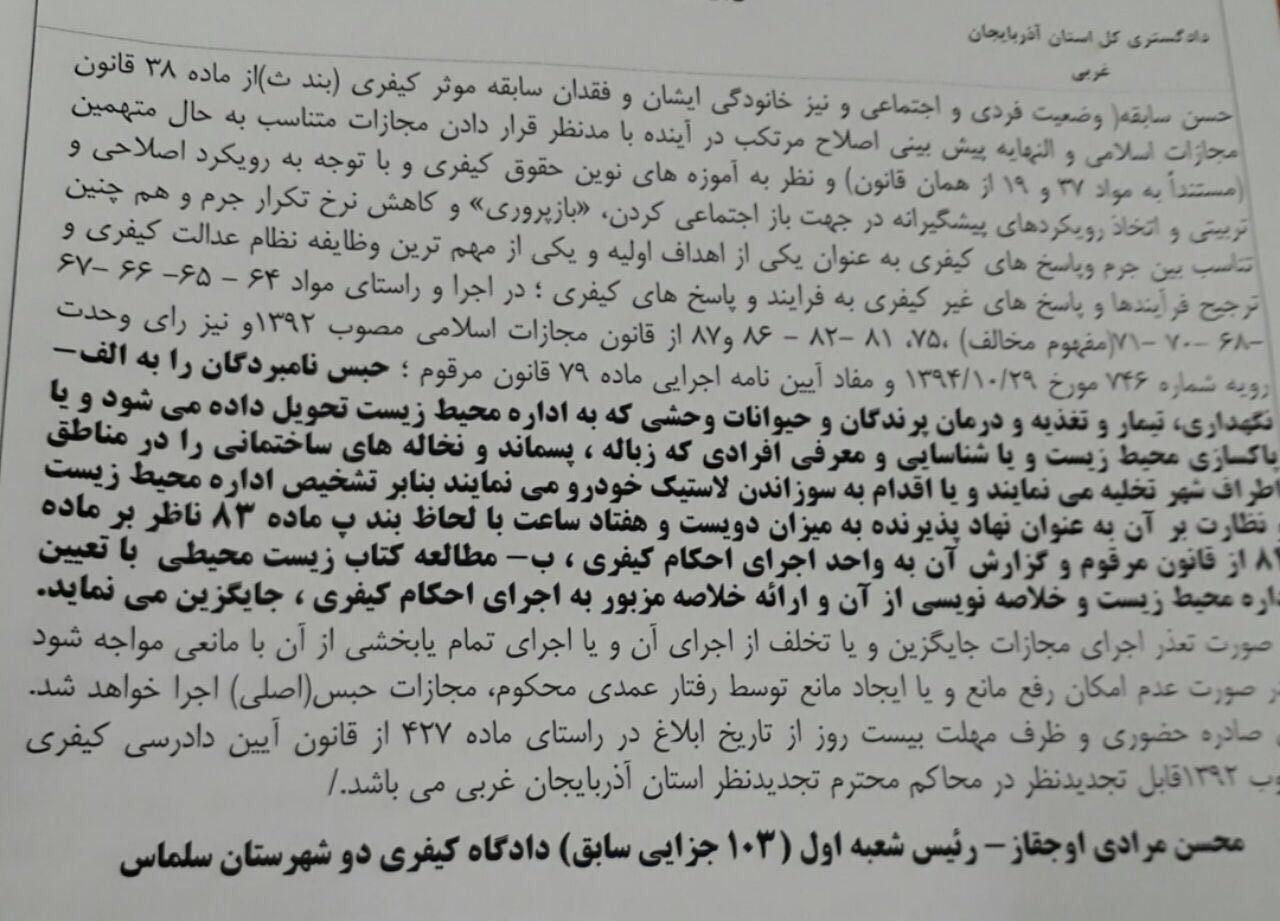 دادگستری کل استان آذربایجان
غربی
حسن سابقه( وضعیت فردی و اجتماعی و نیز خانودگی ایشان و فقدان سابقه موثر کیفری (بند ث)از ماده ۳۸ قانون
مجازات اسلامی و النهایه پیش بینی اصلاح مرتکب در آینده با مدنظر قرار دادن مجازات متناسب به حال متهمین
(مستنداً به مواد ۳۷ و ۱۹ از همان قانون) و نظر به آموزه های نوین حقوق کیفری و با توجه به رویکرد اصلاحی و
تربیتی و اتخاذ رویکردهای پیشگیرانه در جهت باز اجتماعی کردن، «بازپروری» و کاهش نرخ تکرار جرم و هم چنین
تناسب بین جرم وپاسخ های کیفری به عنوان یکی از اهداف اولیه و یکی از مهم ترین وظایفه نظام عدالت کیفری و
ترجیح فرآیندها و پاسخ های غیر کیفری به فرایند و پاسخ های کیفری ؛ در اجرا و راستای مواد ۶۴ - ۶۵- ۶۶ -۶۷
-۶۸ -۷۰ -۷۱(مفهوم مخالف) ،۷۵، ۸۱ -۸۲ - ۸۶ و۸۷ از قانون مجازات اسلامی مصوب ۱۳۹۲و نیز رای وحدت
رویه شماره ۷۴۶ مورخ ۱۳۹۴/۱۰/۲۹ و مفاد آیین نامه اجرایی ماده ۷۹ قانون مرقوم ؛ حبس نامبردگان را به الف-
نگهداری، تیمار و تغذیه و درمان پرندگان و حیوانات وحشی که به اداره محیط زیست تحویل داده می شود و یا
پاکسازی محیط زیست و یا شناسایی و معرفی افرادی که زباله ، پسماند و نخاله های ساختمانی را در مناطق
اطراف شهر تخلیه می نمایند و یا اقدام به سوزاندن لاستیک خودرو می نمایند بنابر تشخیص اداره محیط زیست
و نظارت بر آن به عنوان نهاد پذیرنده به میزان دویست و هفتاد ساعت با لحاظ بند پ ماده ۸۳ ناظر بر ماده
از قانون مرقوم و گزارش آن به واحد اجرای احکام کیفری ، ب- مطالعه کتاب زیست محیطی با تعیین
محیط زیست و خلاصه نویسی از آن و ارائه خلاصه مزبور به اجرای احکام کیفری ، جایگزین می نماید.
صورت تعذر اجرای مجازات جایگزین و یا تخلف از اجرای آن و یا اجرای تمام یابخشی از آن با مانعی مواجه شود
صورت عدم امکان رفع مانع و یا ایجاد مانع توسط رفتار عمدی محکوم، مجازات حبس(اصلی) اجرا خواهد شد.
صادره حضوری و ظرف مهلت بیست روز از تاریخ ابلاغ در راستای ماده ۴۲۷ از قانون آیین دادرسی کیفری
۱۳۹۲قابل تجدیدنظر در محاکم محترم تجدیدنظر استان آذربایجان غربی می باشد./
محسن مرادی اوجقاز - رئیس شعبه اول (۱۰۳ جزایی سابق) دادگاه کیفری دو شهرستان سلماس